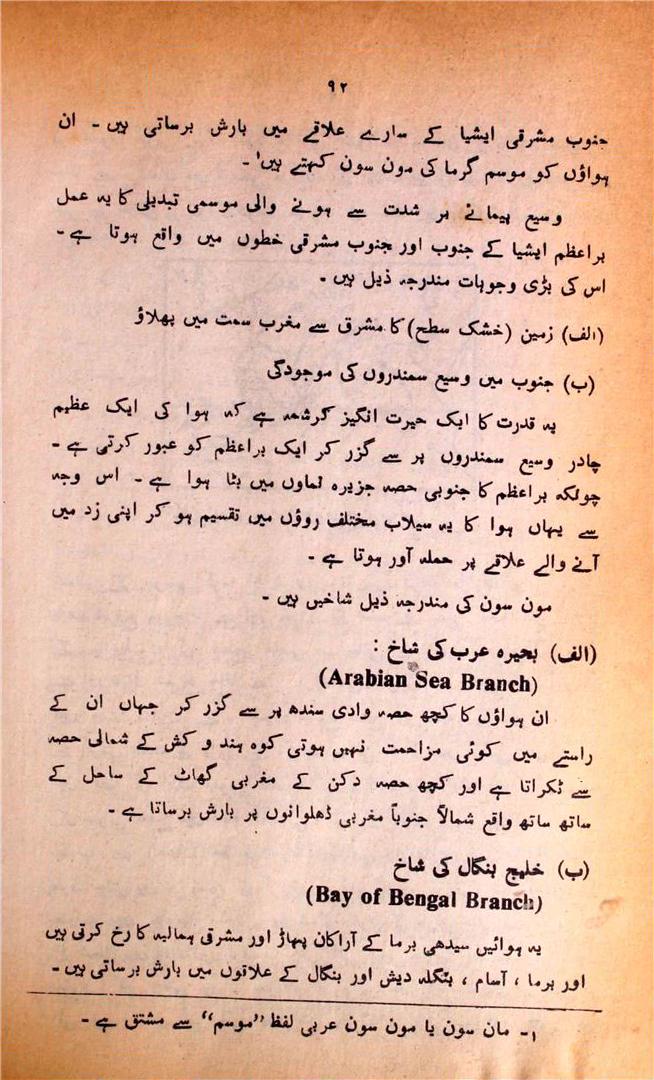 ۹۲
جنوب مشرقی ایشیا کے سارے علاقے میں بارش برساتی ہیں ۔ ان
ہواؤں کو موسم گرما کی مون سون کہتے ہیں¹ ۔
وسیع پیمانے پر شدت سے ہونے والی موسمی تبدیلی کا یہ عمل
براعظم ایشیا کے جنوب اور جنوب مشرقی خطوں میں واقع ہوتا ہے ۔
اس کی بڑی وجوہات مندرجہ ذیل ہیں ۔
(الف) زمین (خشک سطح) کا مشرق سے مغرب سمت میں پھلاؤ
(ب) جنوب میں وسیع سمندروں کی موجودگی
یہ قدرت کا ایک حیرت انگیز کرشمہ ہے کہ ہوا کی ایک عظیم
چادر وسیع سمندروں پر سے گزر کر ایک براعظم کو عبور کرتی ہے ۔
چونکہ براعظم کا جنوبی حصہ جزیرہ نماوں میں بٹا ہوا ہے ۔ اس وجہ
سے یہاں ہوا کا یہ سیلاب مختلف روؤں میں تقسیم ہو کر اپنی زد میں
آنے والے علاقے پر حملہ آور ہوتا ہے ۔
مون سون کی مندرجہ ذیل شاخیں ہیں ۔
(الف) بحیرہ عرب کی شاخ :
(Arabian Sea Branch)
ان ہواؤں کا کچھ حصہ وادی سندھ پر سے گزر کر جہاں ان کے
راستے میں کوئی مزاحمت نہیں ہوتی کوہ ہند و کش کے شمالی حصہ
سے ٹکراتا ہے اور کچھ حصہ دکن کے مغربی گھاٹ کے ساحل کے
ساتھ ساتھ واقع شمالاً جنوباً مغربی ڈھلوانوں پر بارش برساتا ہے ۔
(ب) خلیج بنگال کی شاخ
(Bay of Bengal Branch)
یہ ہوائیں سیدھی برما کے آراکان پہاڑ اور مشرقی ہمالیہ کا رخ کرتی ہیں
اور برما ، آسام ، بنگلہ دیش اور بنگال کے علاقوں میں بارش برساتی ہیں ۔
۱۔ مان سون یا مون سون عربی لفظ ”موسم“ سے مشتق ہے ۔